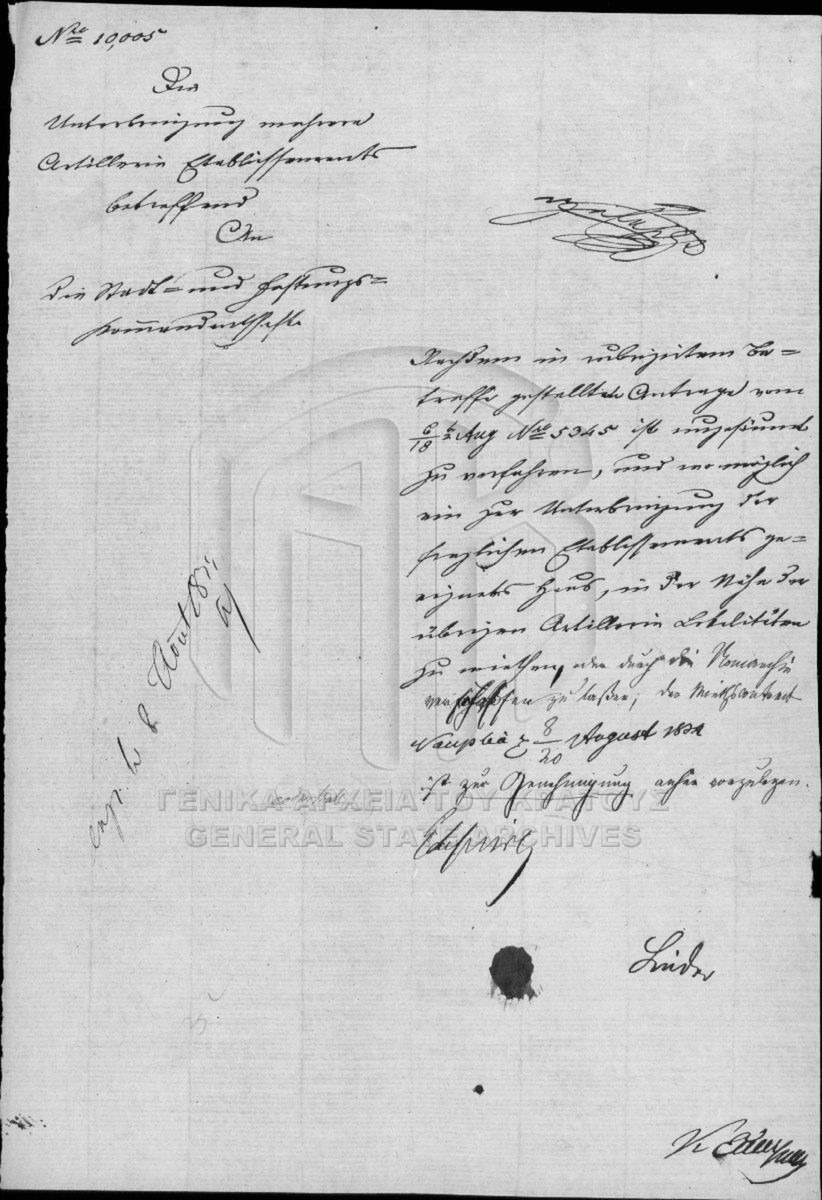 Nro 10,005
Die
Unterbringung mehrere
Artillerie Etablissements
betreffend
An
die Stadt- und Festungs-
kommandantschaft
Nachdem in rubrizirtem Be-
treffe gestellten Antrage vom
6/18 Aug Nro 5345 ist ungesäumt
zu verfahren, und wo möglich
ein zur Unterbringung der
fraglichen Etablissements ge-
eignetes Haus, in der Nähe der
übrigen Artillerie Lokalitäten
zu miethen, oder durch die Nomarchie
verschaffen zu laßen; der Miethcontract
Nauplia 8/20 August 1834
ist zur Genehmigung anher vorzulegen.
exp. 8 Août
ΓΕΝΙΚΑ ΑΡΧΕΙΑ ΤΟΥ ΚΡΑΤΟΥΣ
GENERAL STATE ARCHIVES